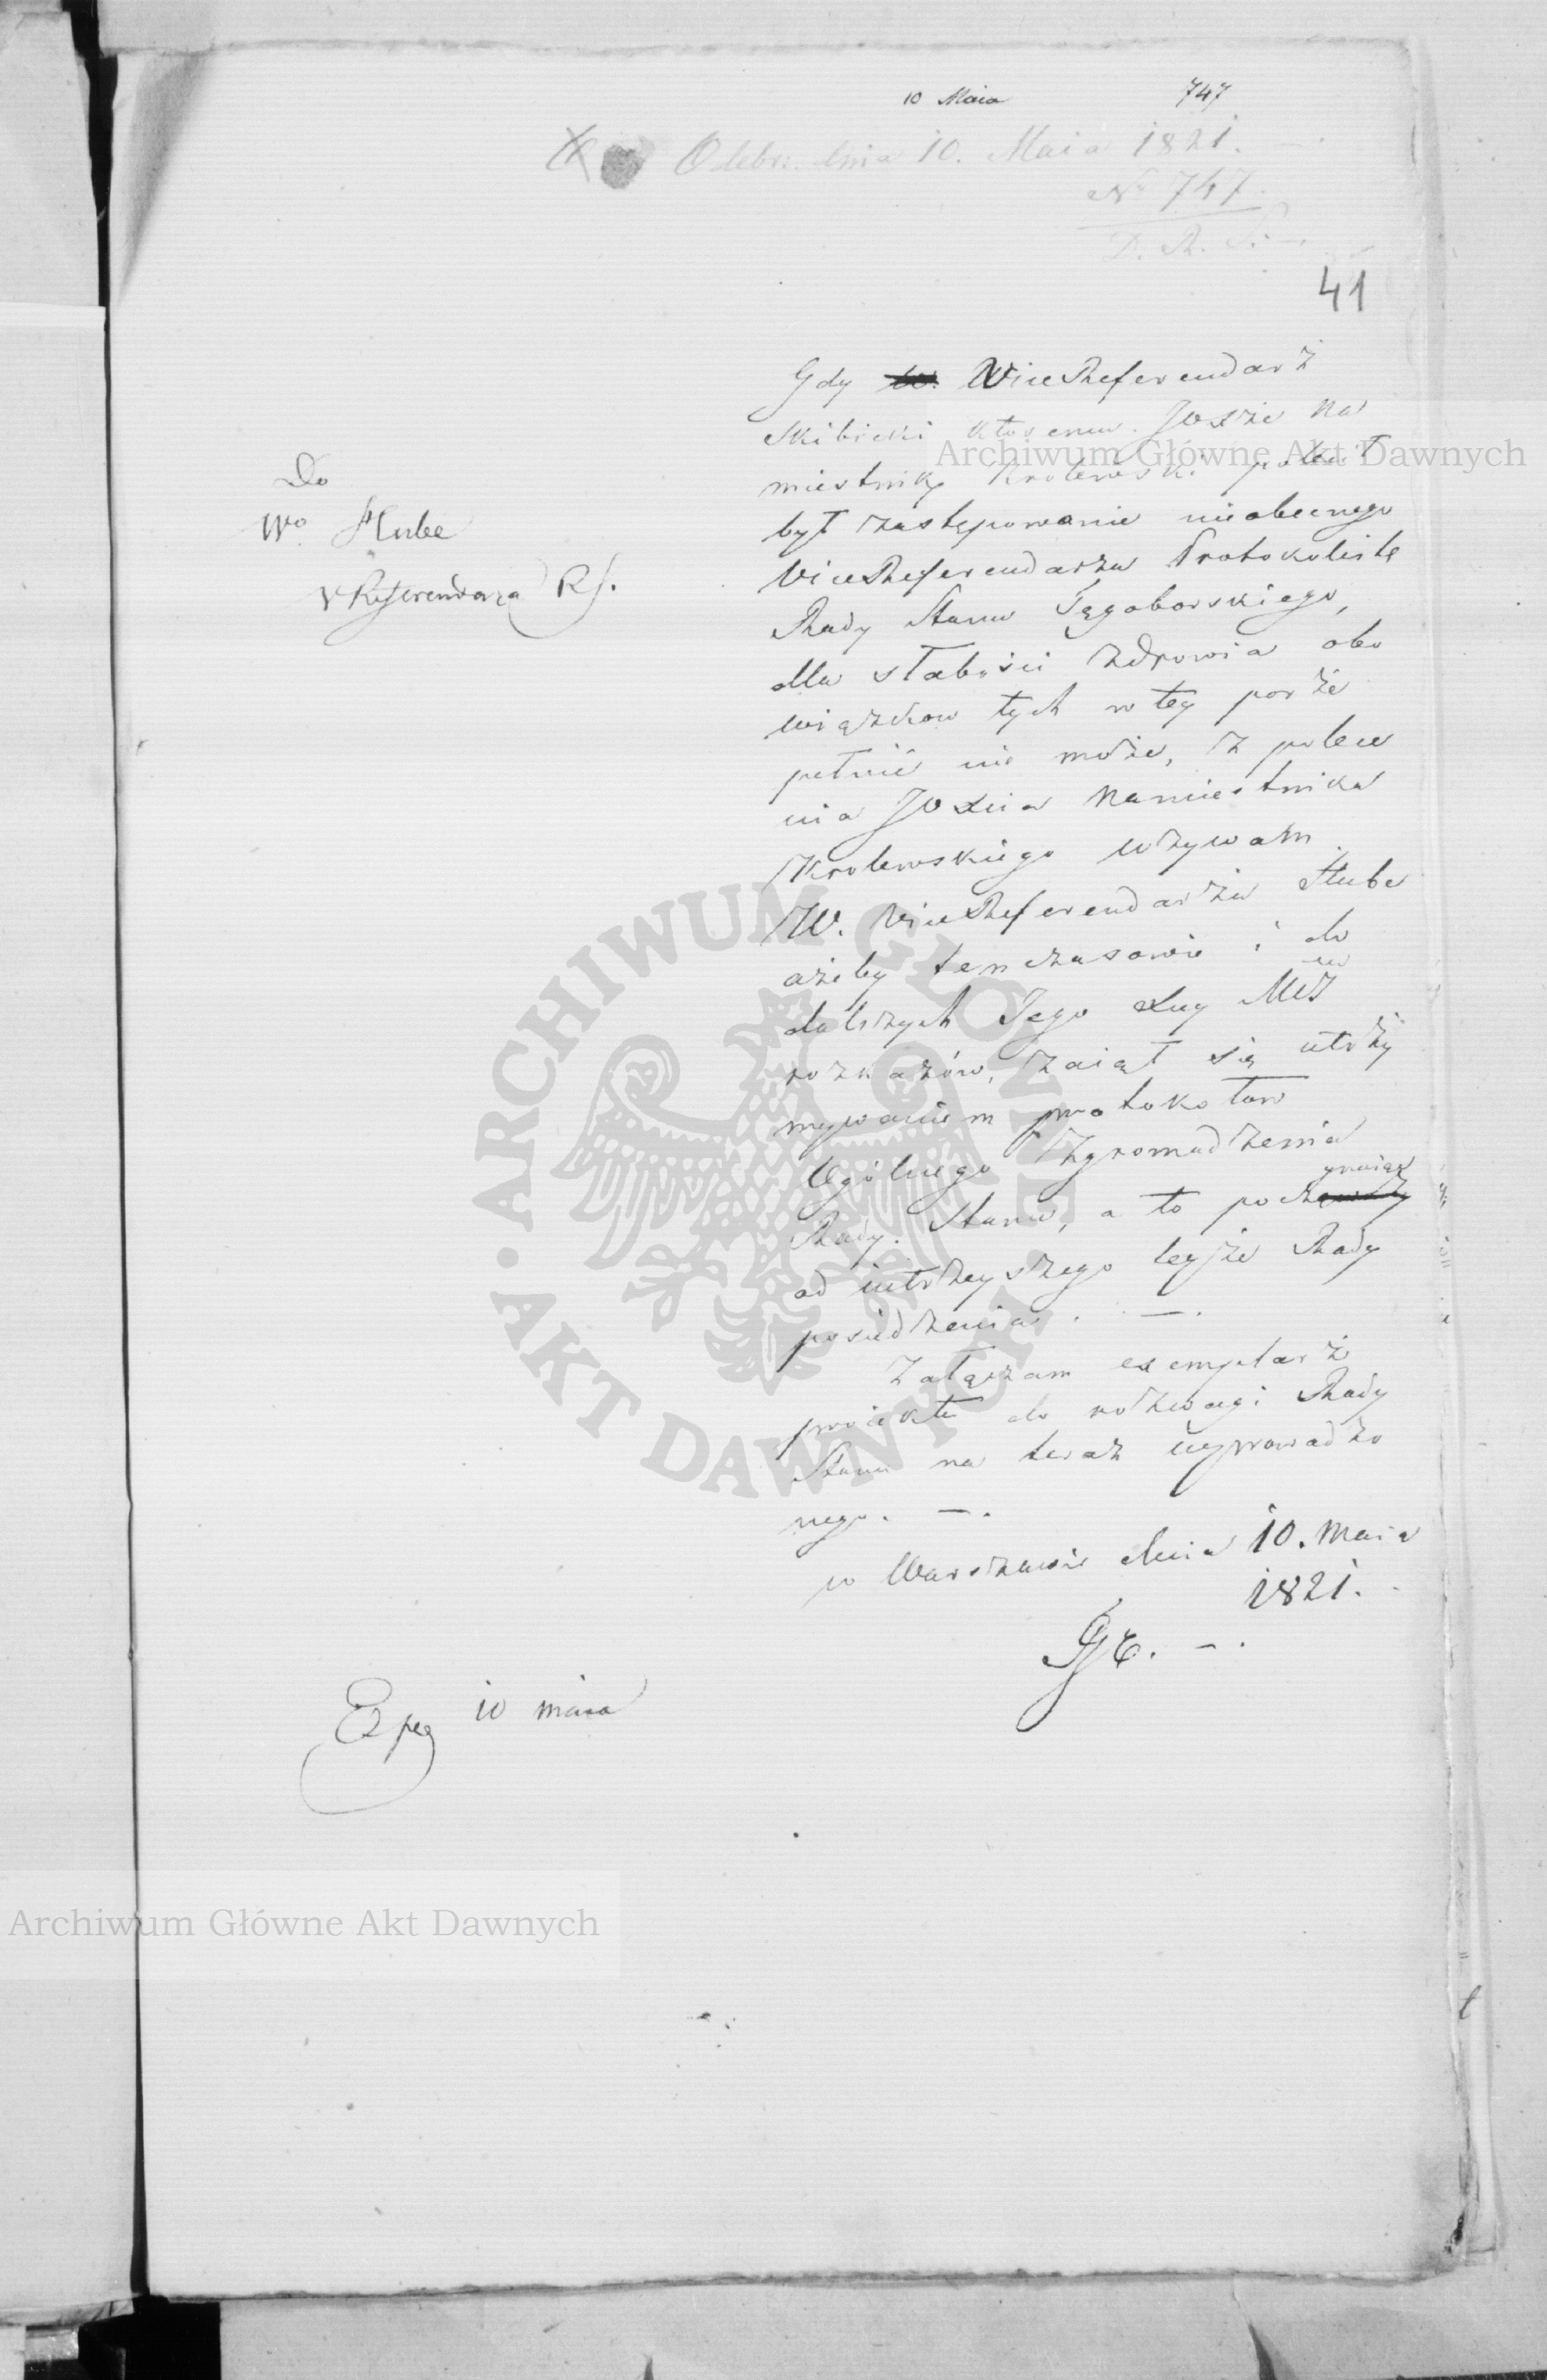 10 Maia 747
Odebr: dnia 10. Maia 1821. —
No 747.
D. R. S. —.
41
Do
Wo Hube
VReferendarza RS.
Gdy W. ViceReferendarż
Skibicki któremu JOXże Na
miestnik Królewski polecił
był zastępowanie nieobecnego
ViceReferendarza Protokolistę
Rady Stanu Tęgoborskiego,
dla słabości zdrowia obo
wiązkow tych w tey porże
pełnić nie może, z polece
nia JOXcia Namiestnika
Krolewskiego wzywam
W. ViceReferendarża Hube
ażeby tenczasowie i do
dalszych Jego Xcey Mci
rozkazów, zaiął się utrży
mywaniem protokołow
Ogólnego Zgromadzenia
Rady Stanu, a to począwszy
ynaiąc
od iutrzeyszego teyże Rady
posiedzenia. —.
Załączam exemplarż
proiektu do rozwagi Rady
Stanu na teraz wprowadzo
nego. —.
w Warszawie dnia 10. Maia
1821.
Exp 10 maia
Archiwum Główne Akt Dawnych
Archiwum Główne Akt Dawnych
ARCHIWUM GŁÓWNE AKT DAWNYCH